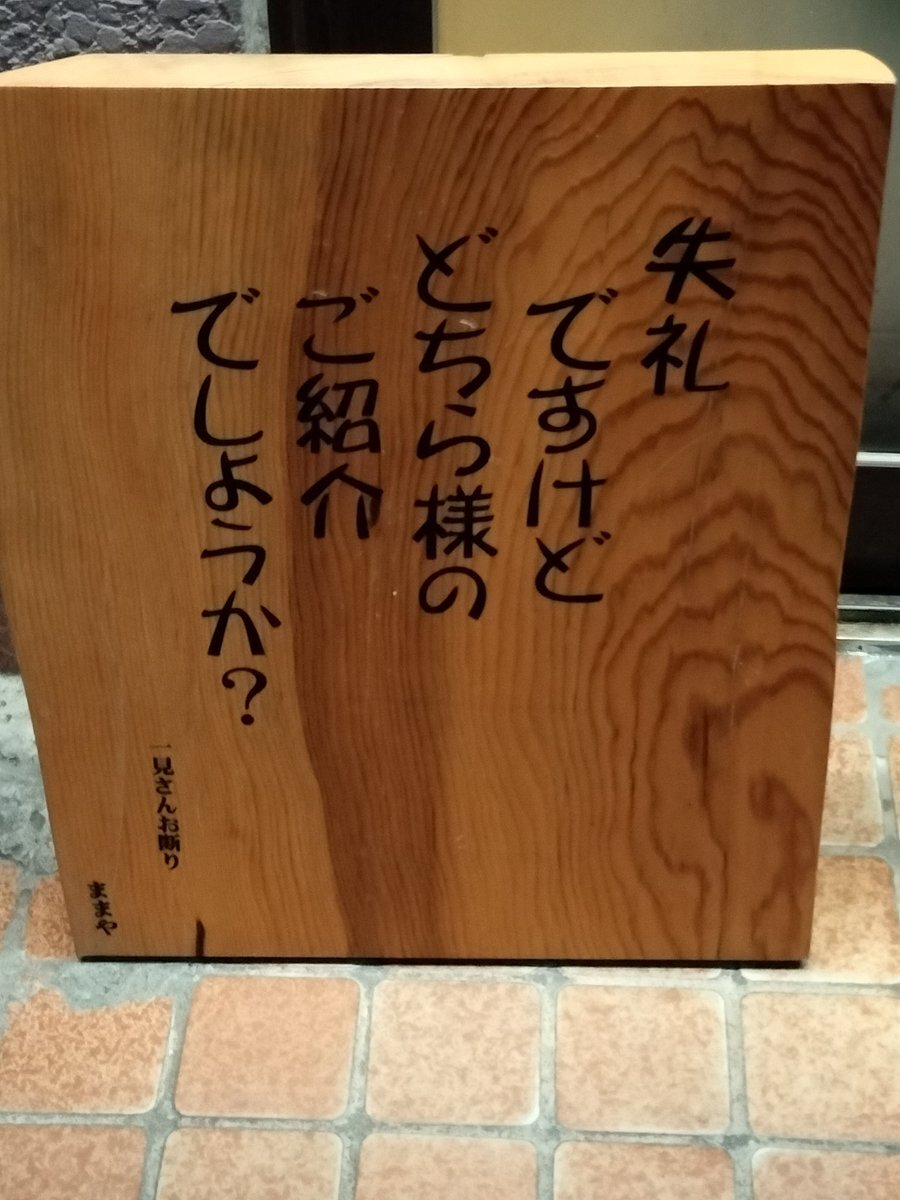 失礼
ですけど
どちら様の
ご紹介
でしようか?
一見さんお断り
ままや